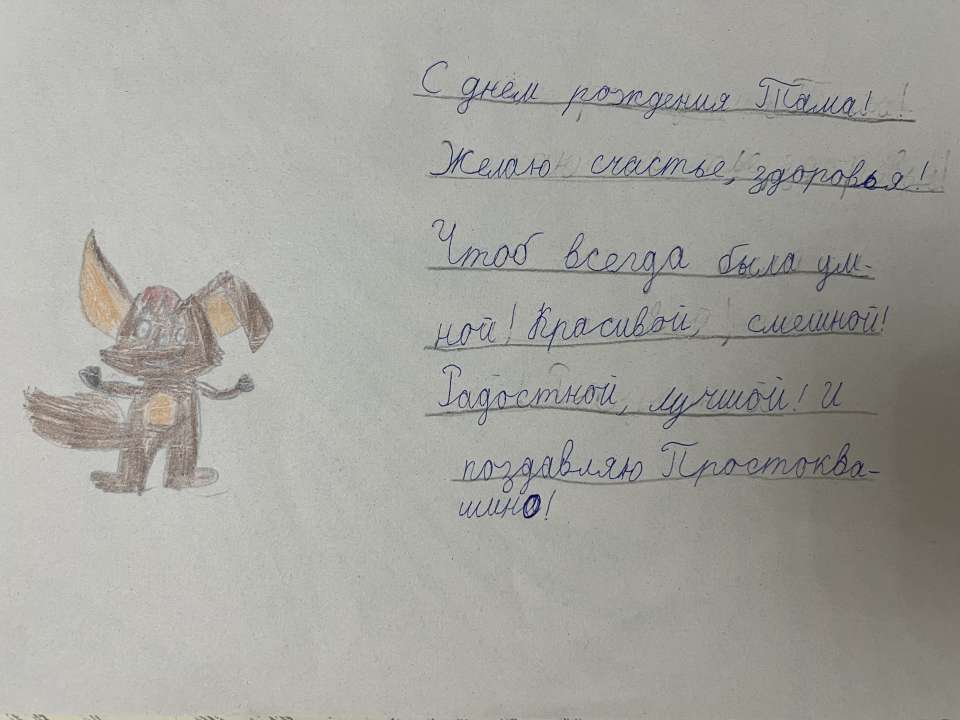 С днём рождения Тама!
Желаю счастье, здоровья!
Чтоб всегда была ум-
ной! Красивой, смешной!
Радостной, лучшой! И
поздавляю Простоква-
шино!